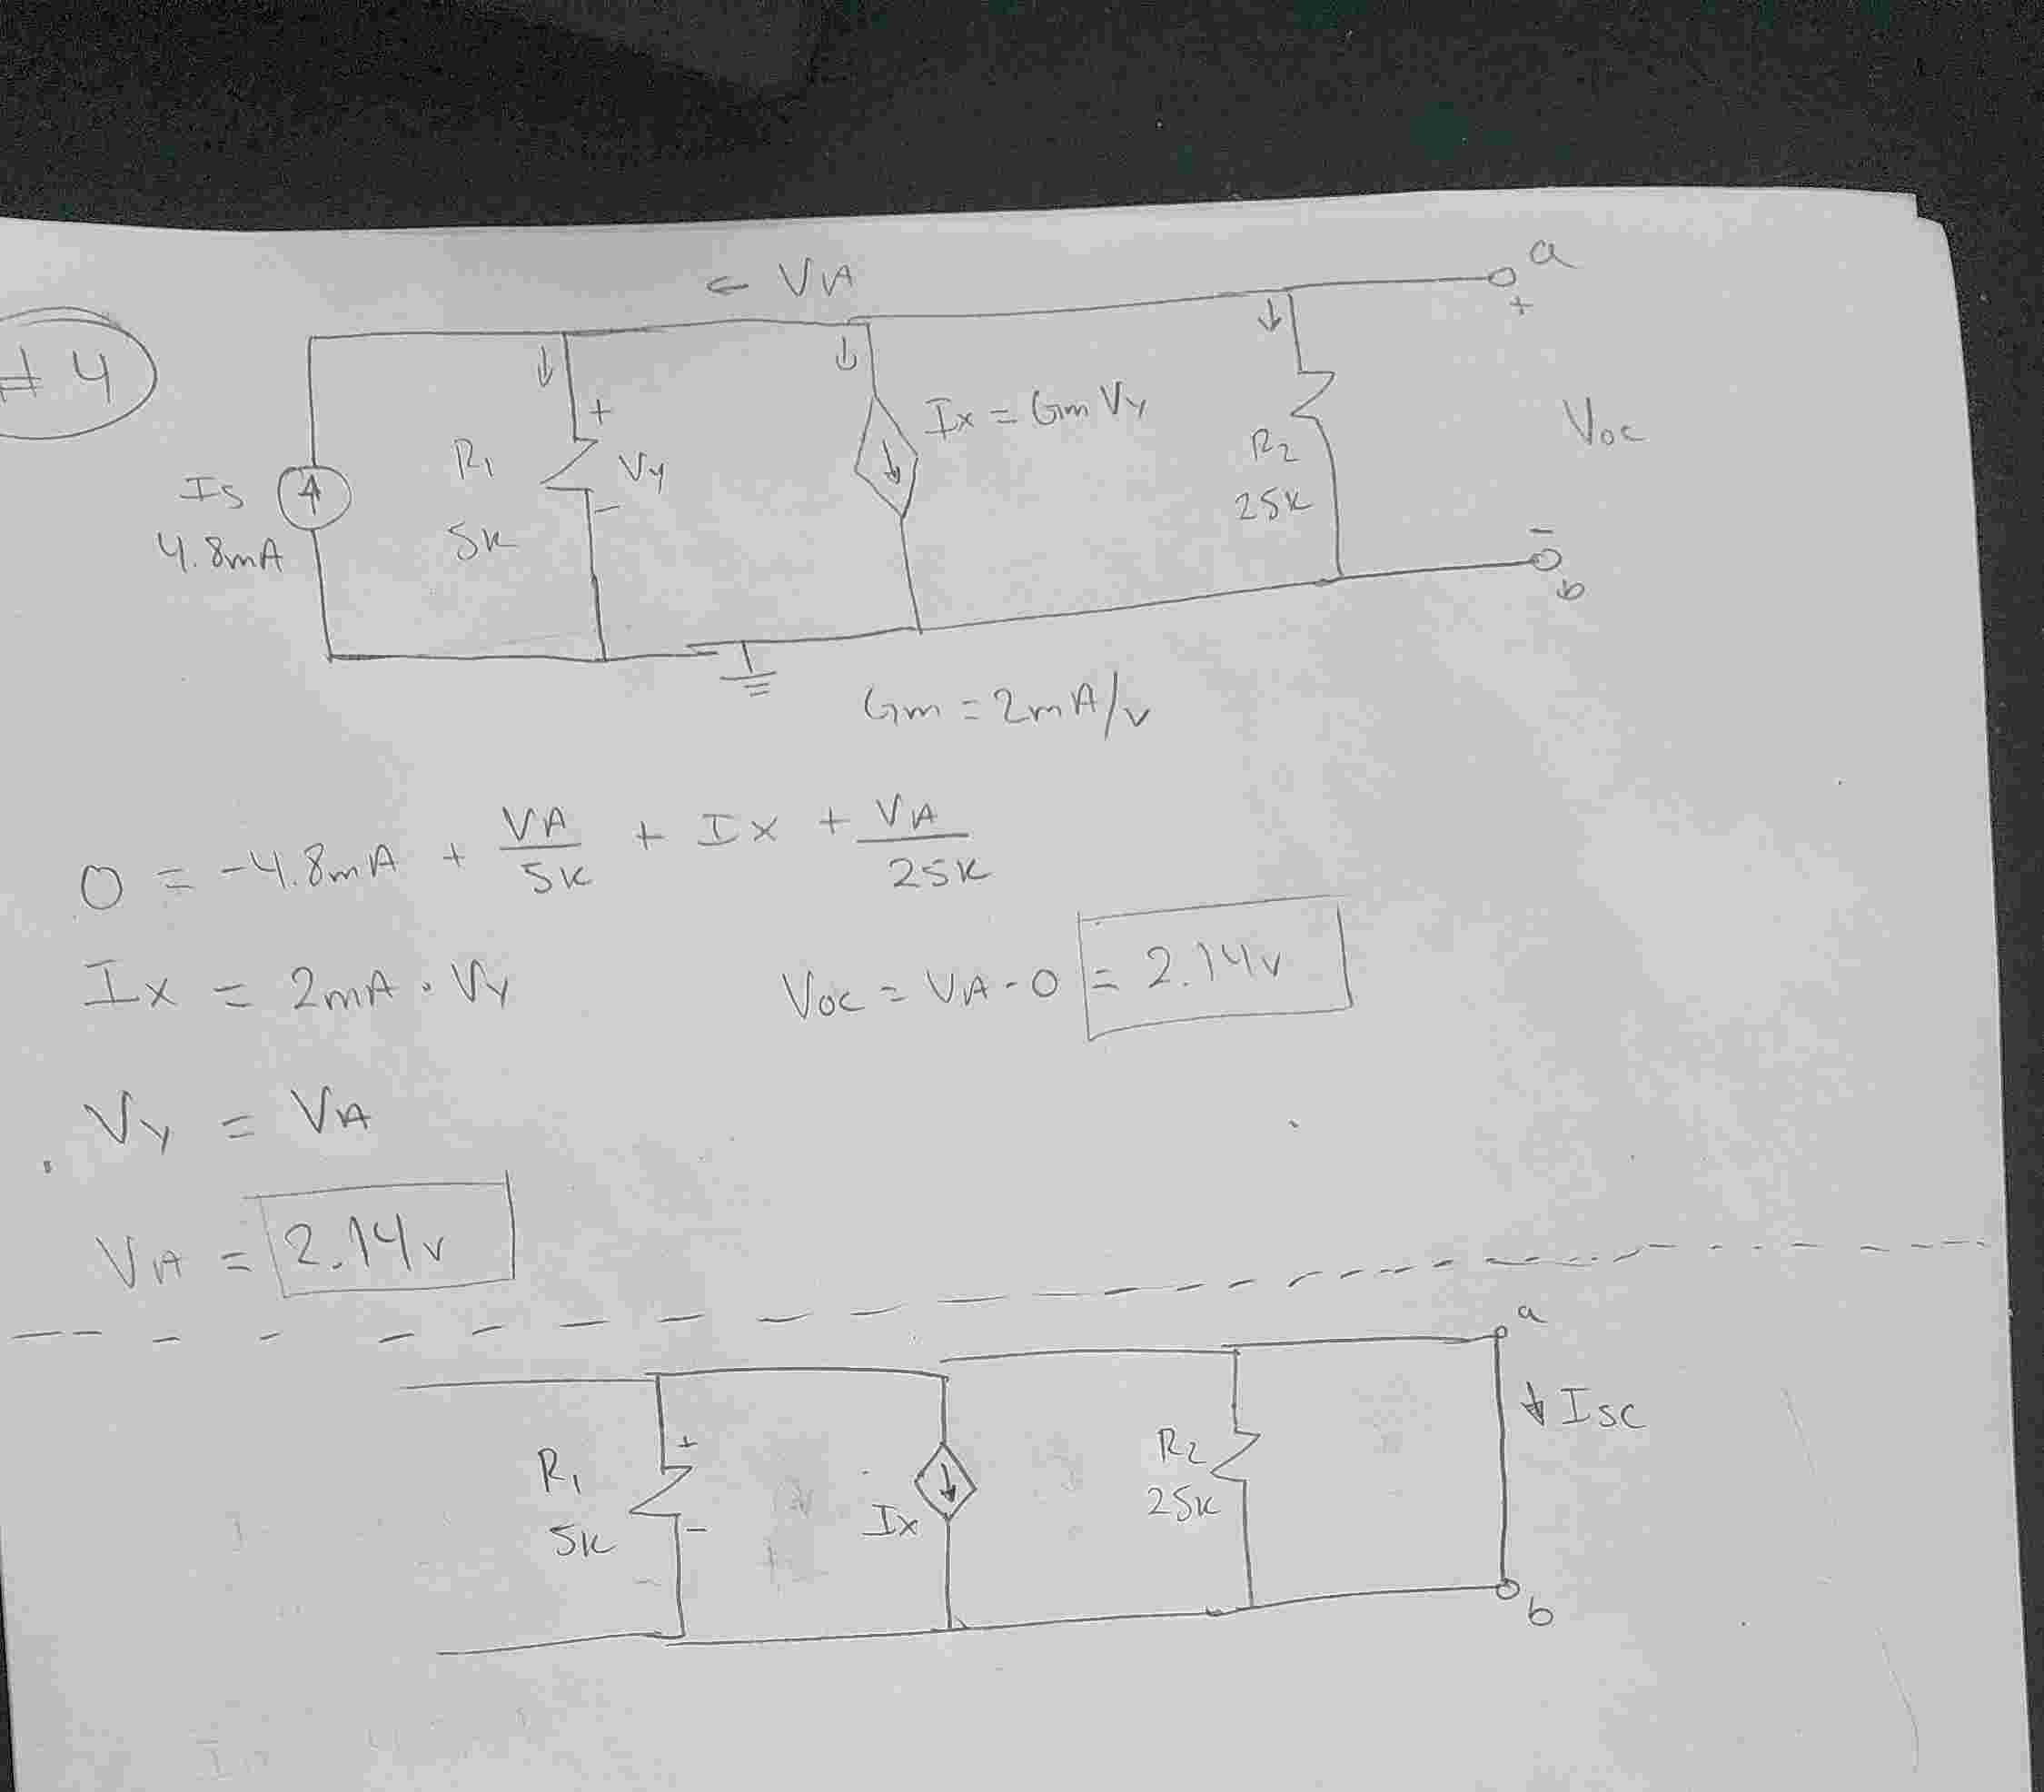 # 4
← VA
a
+
Is
4.8mA
R1
5K
+
Vy
-
Ix = Gm Vy
R2
25K
Voc
-
b
Gm = 2mA/v
0 = -4.8mA + VA/5K + Ix + VA/25K
Ix = 2mA · Vy
Voc = VA - 0 = 2.14v
Vy = VA
VA = 2.14v
a
R1
5K
+
-
Ix
R2
25K
↓ Isc
b